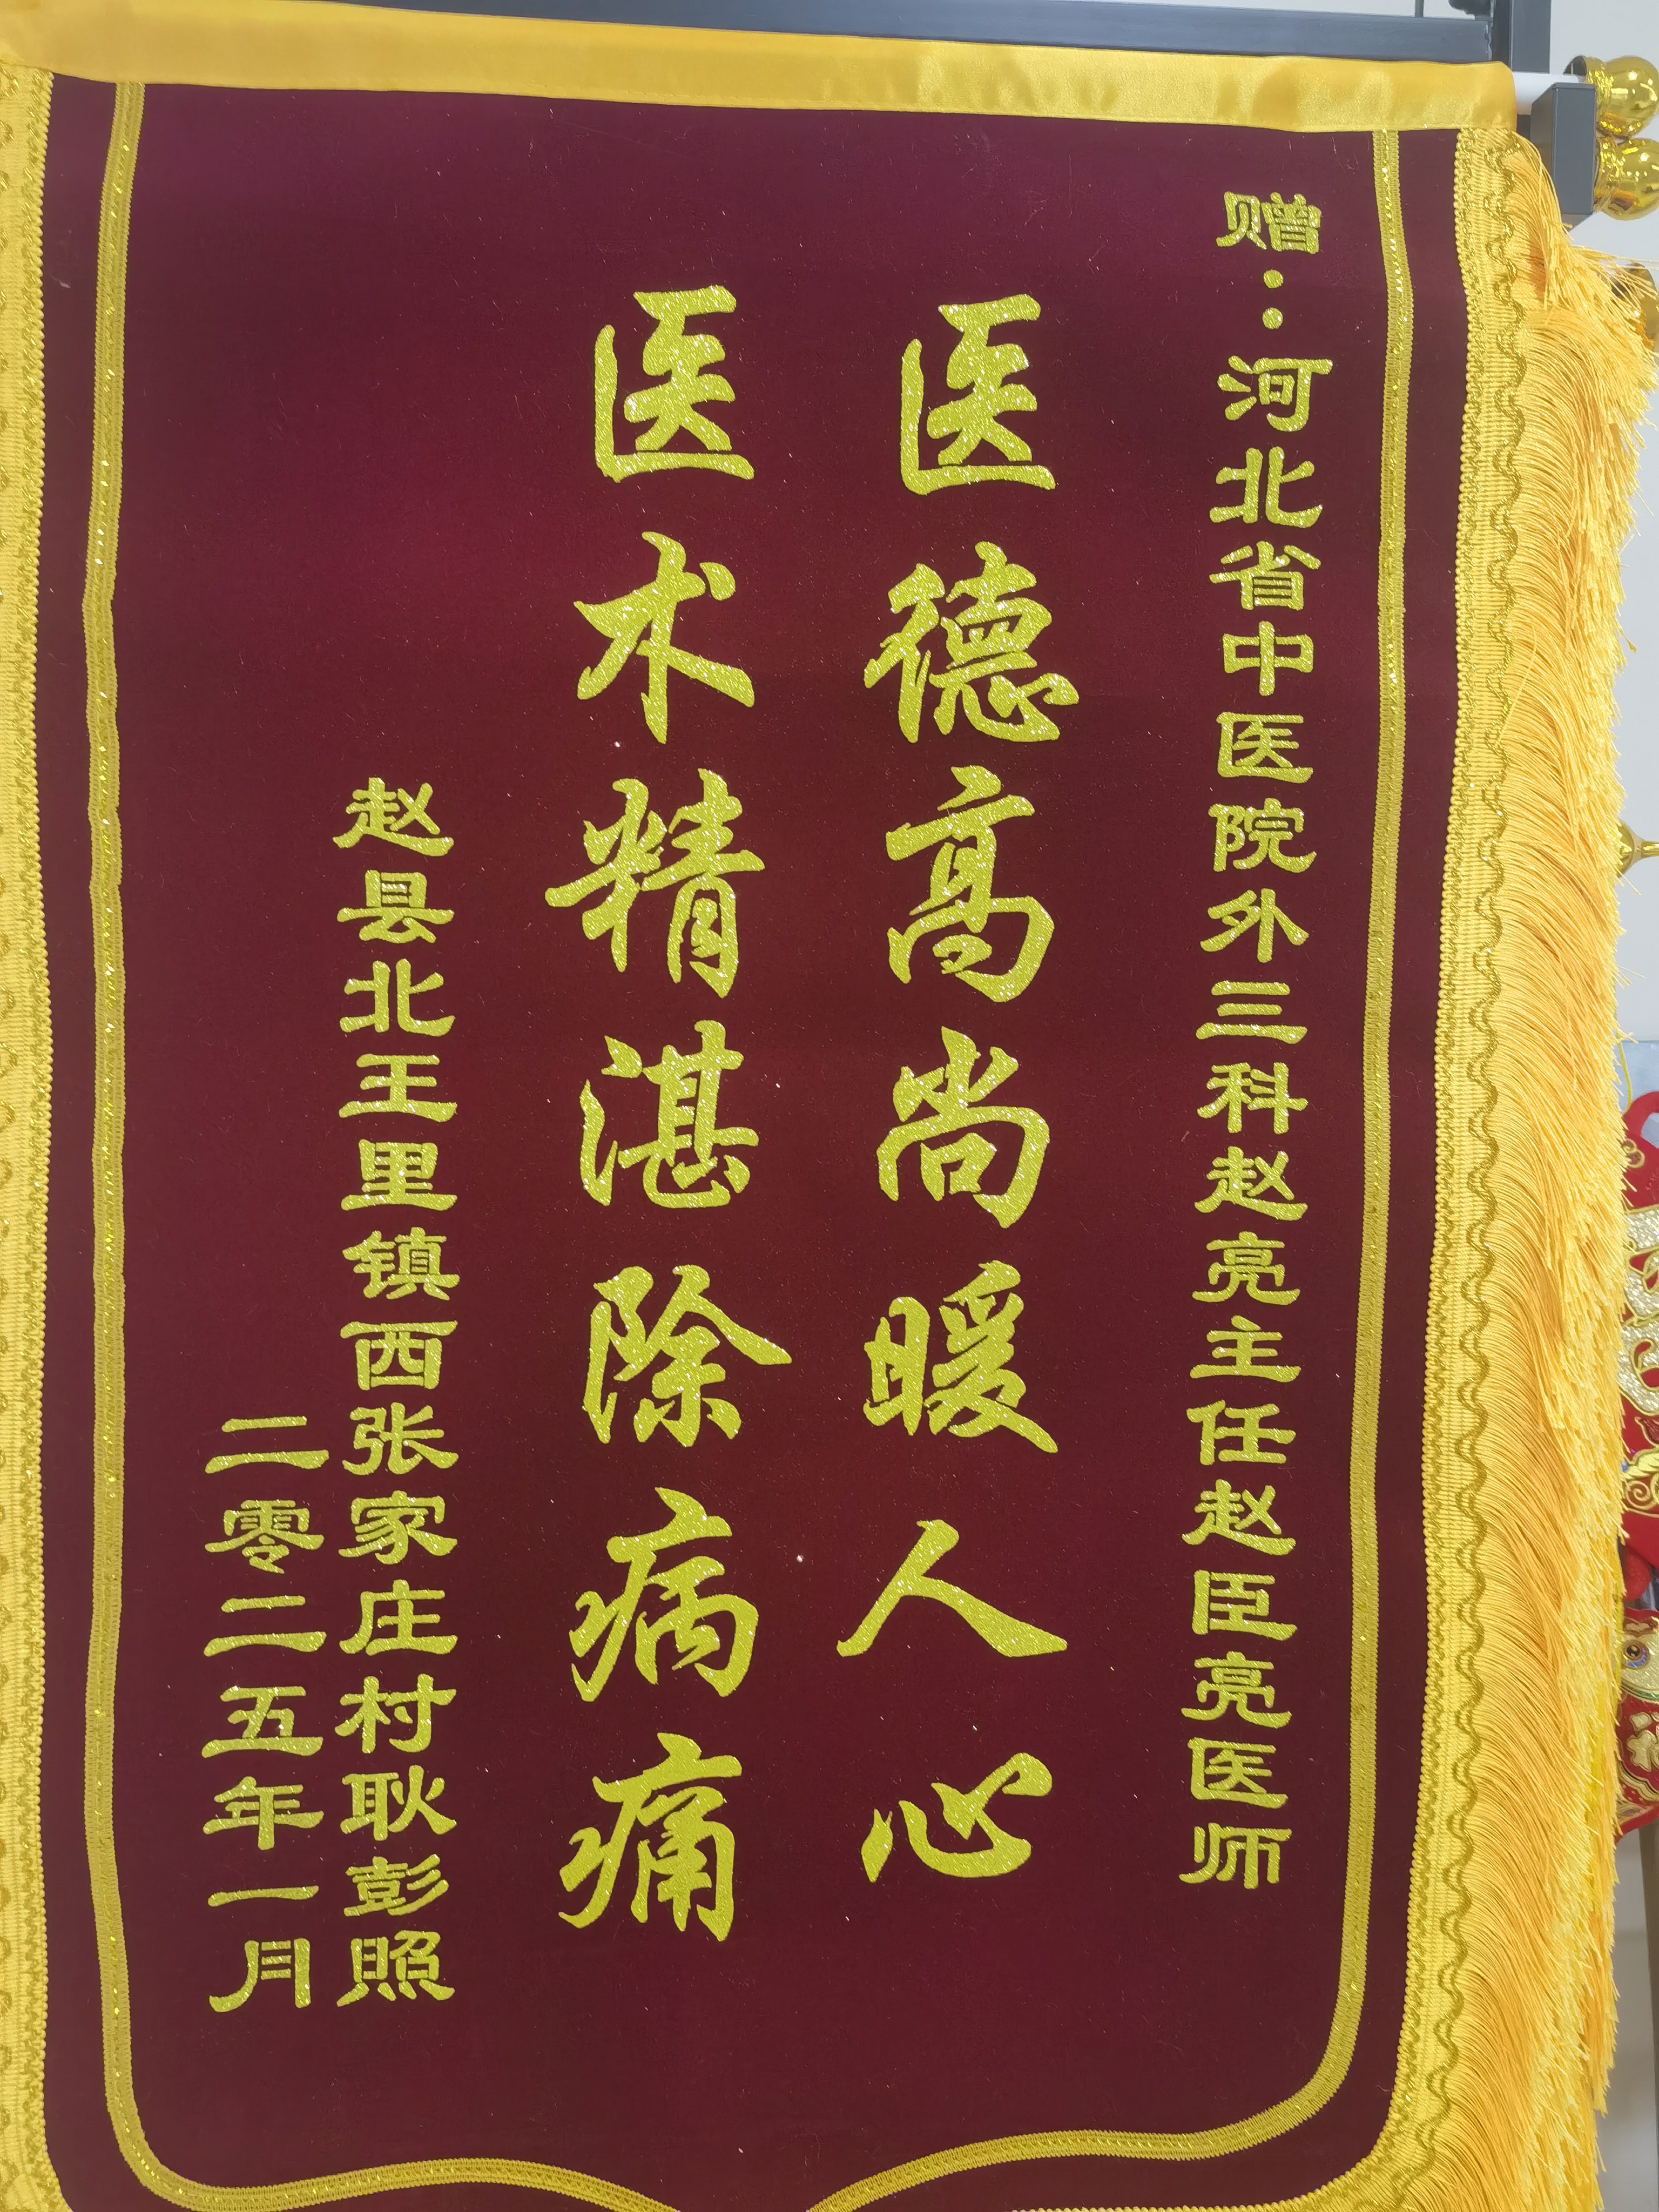 赠：河北省中医院外三科赵亮主任赵臣亮医师
医德高尚暖人心
医术精湛除病痛
赵县北王里镇西张家庄村耿彭照
二零二五年一月